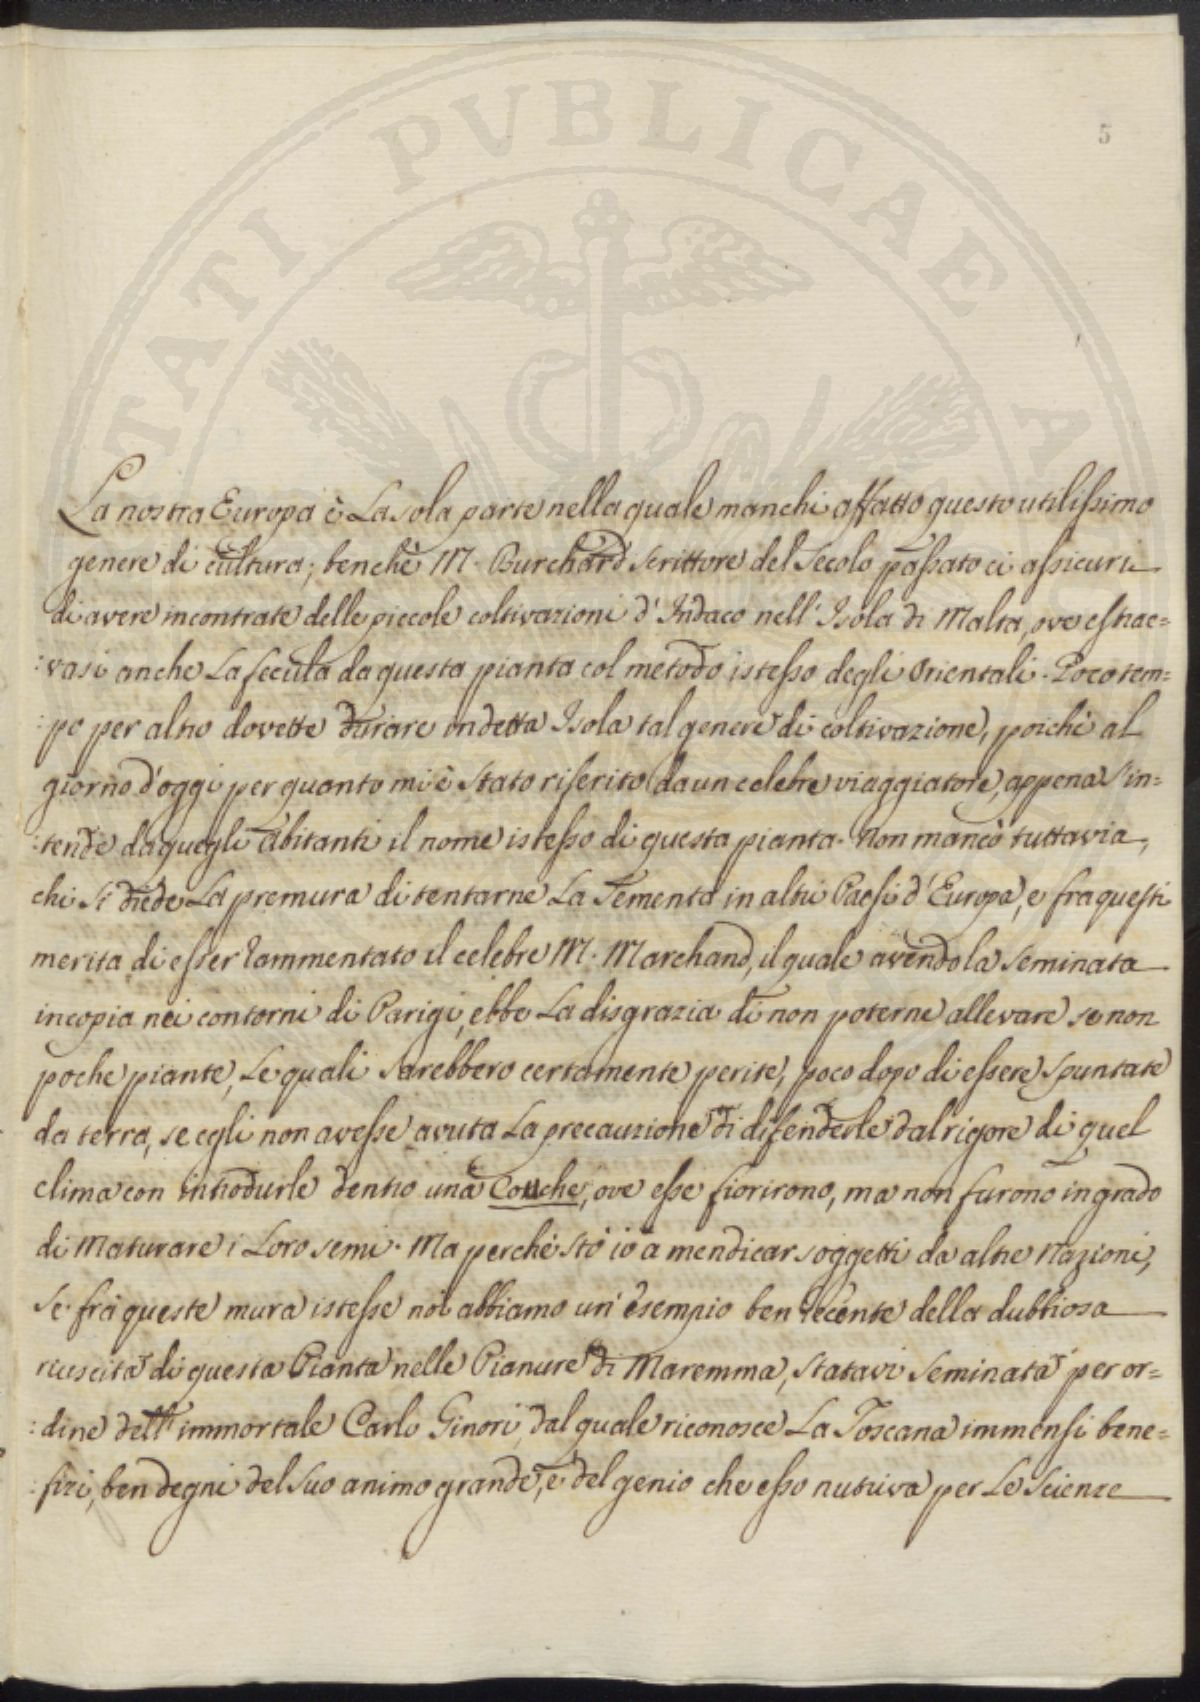 TATI PUBLICAE A
5
La nostra Europa è La sola parte nella quale manchi affatto questo utilissimo
genere di cultura; benchè M. Burchard Scrittore del Secolo passato ci assicuri
di avere incontrate delle piccole coltivazioni d'Indaco nell'Isola di Malta, ove estrae=
:vasi anche La fecula da questa pianta col metodo istesso degli Orientali. Poco tem=
:po per altro dovette durare in detta Isola tal genere di coltivazione, poichè al
giorno d'oggi per quanto mi è Stato riferito da un celebre viaggiatore, appena S'in=
:tende da quegli abitanti il nome istesso di questa pianta. Non mancò tuttavia,
chi Si diede La premura di tentarne La Sementa in altri Paesi d'Europa, e fra questi
merita di esser rammentato il celebre M. Marchand, il quale avendola Seminata
in copia nei contorni di Parigi, ebbe La disgrazia di non poterne allevare se non
poche piante, Le quali Sarebbero certamente perite, poco dopo di essere Spuntate
da terra, se egli non avesse avuta La precauzione di difenderle dal rigore di quel
clima con introdurle dentro una Couche, ove esse fiorirono, ma non furono in grado
di Maturare i Loro semi. Ma perchè Stò iò a mendicar soggetti da altre Nazioni,
Se frà queste mura istesse noi abbiamo un' esempio ben recente della dubbiosa
riuscita di questa Pianta nelle Pianure di Maremma, Statavi Seminata per or=
:dine dell' immortale Carlo Ginori, dal quale riconosce La Toscana immensi bene=
:fizi, ben degni del Suo animo grande, e del genio che esso nutriva per Le Scienze